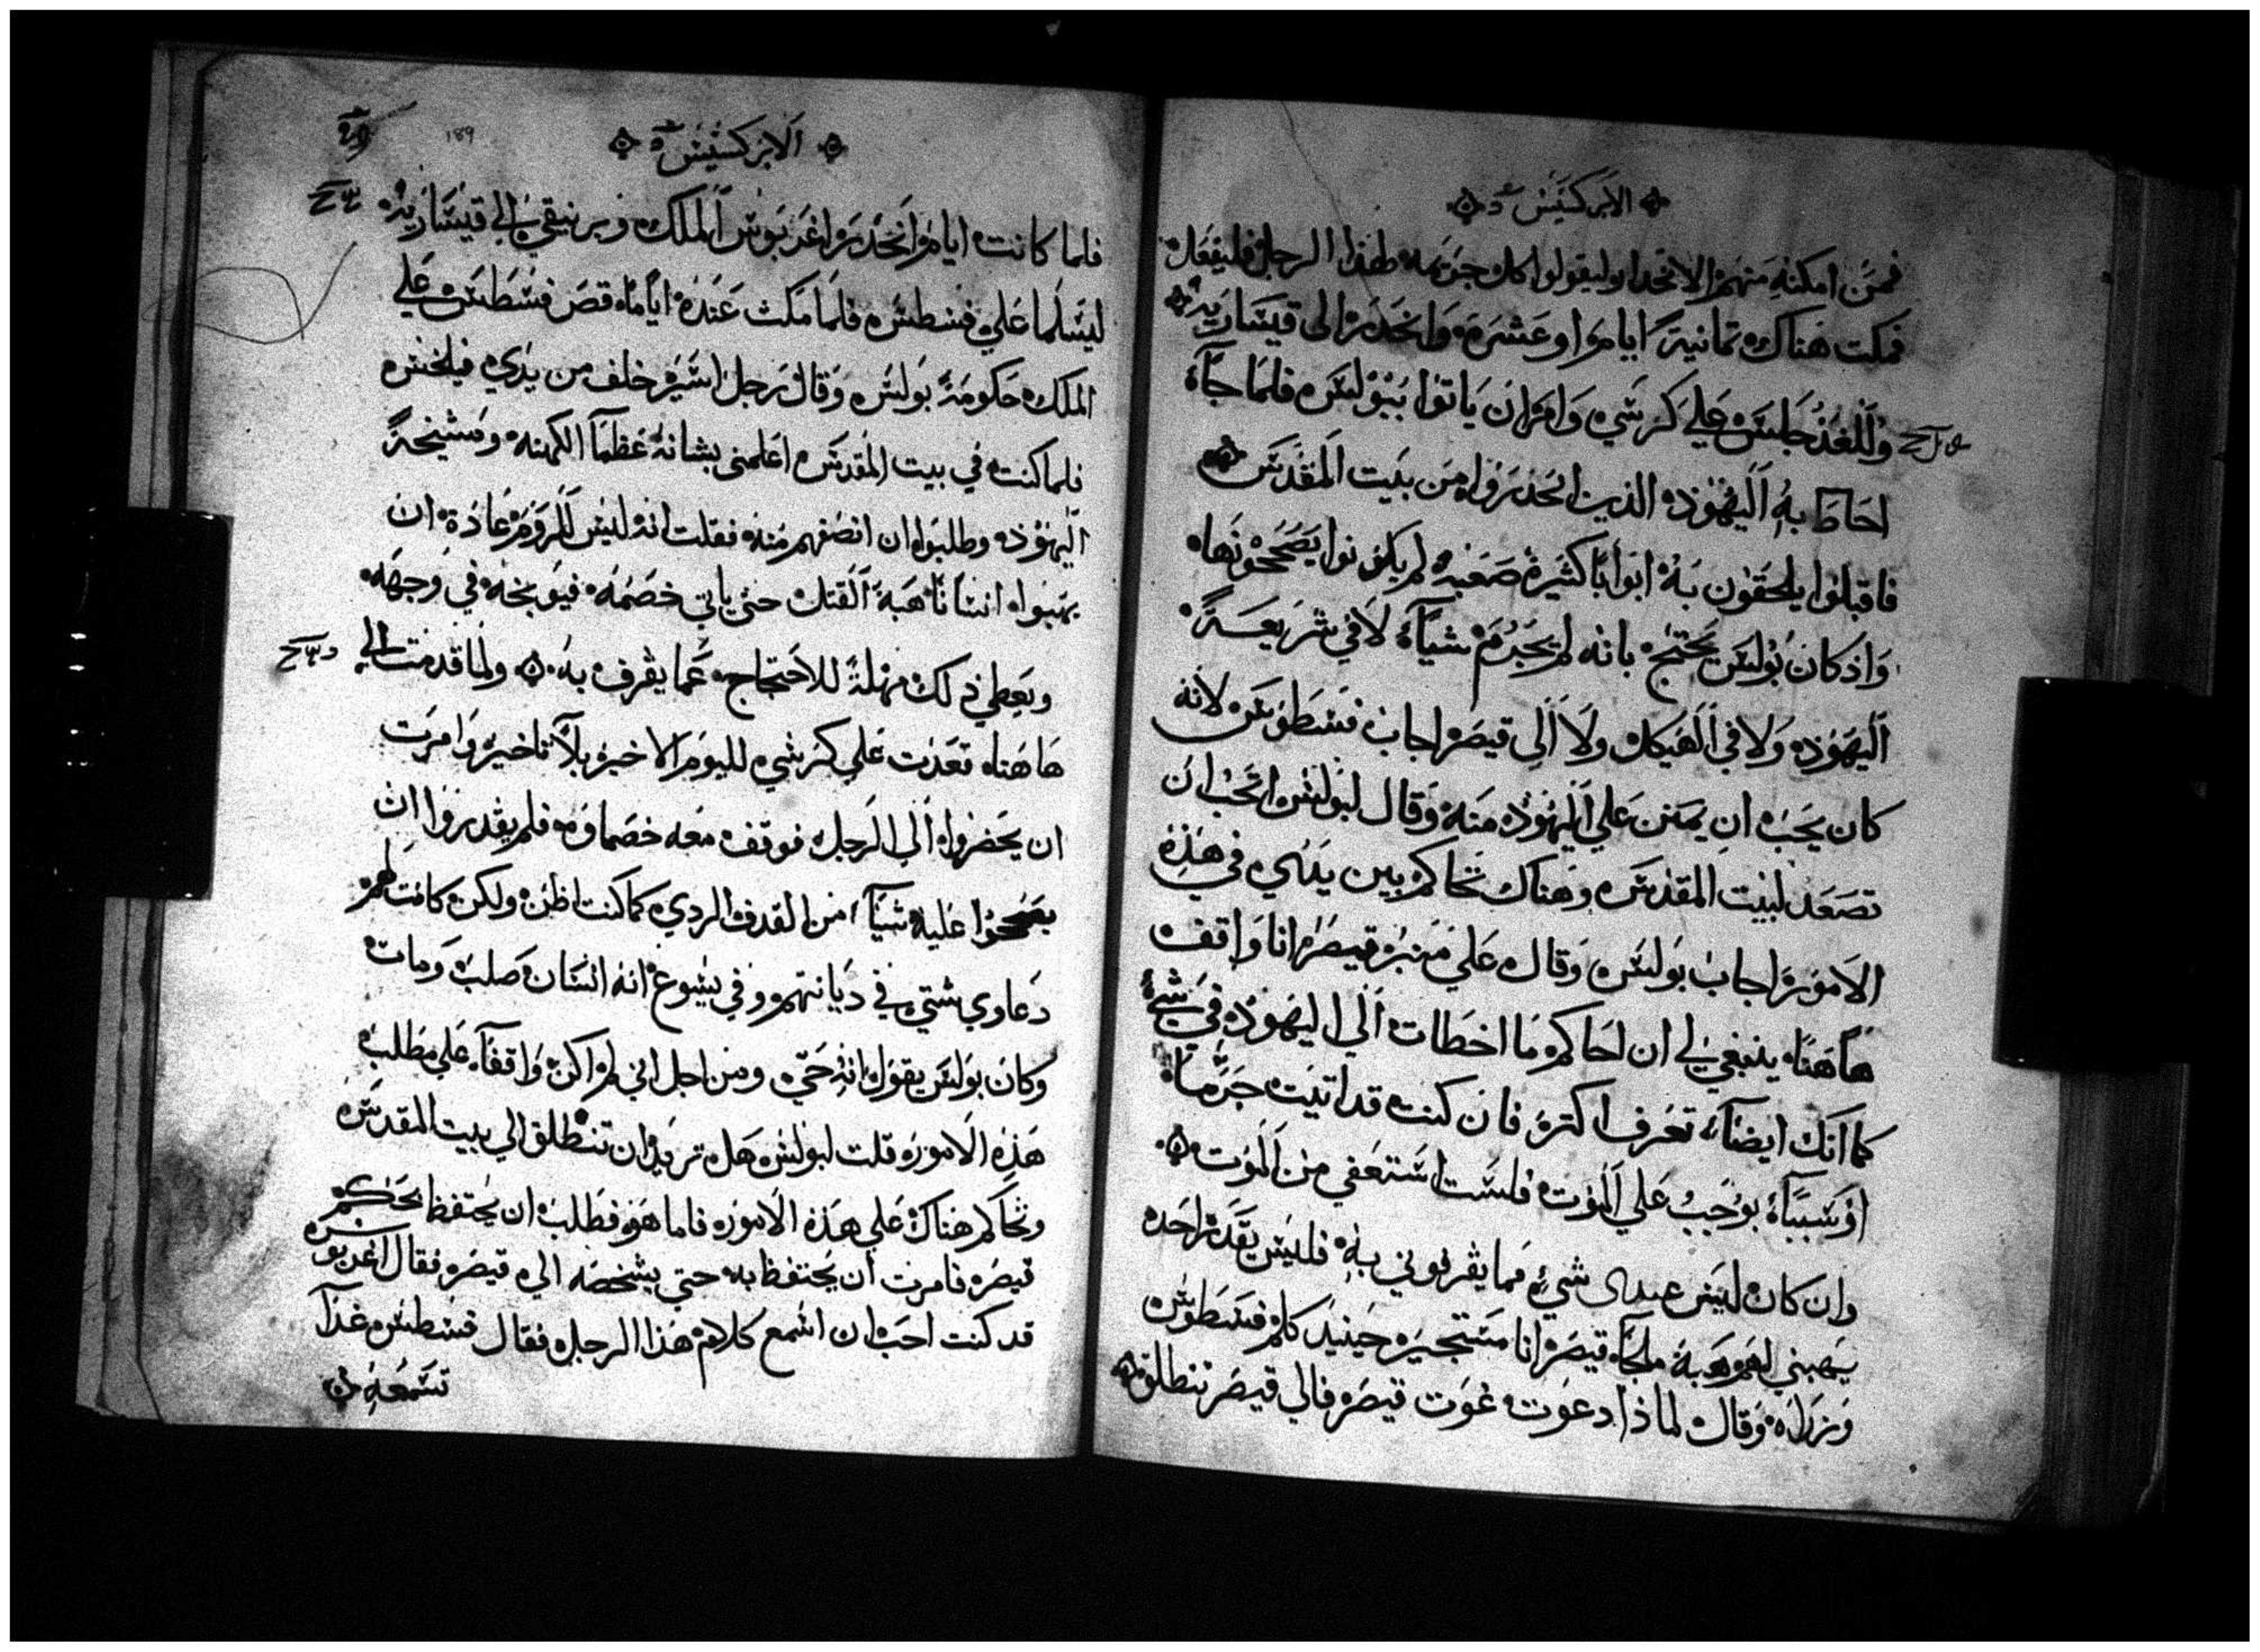 الابركسيس
فمن امكنه منهم الانحدار وليقولوا كل جرمه لهذا الرجل فليفعل
فمكت هناك تمانية ايام او عشرة وانحدر الى قيسارية
وللغد جلس علي كرسي وامر ان ياتوا ببولس فلما جاء
احاط به اليهود الذين انحدروا من بيت المقدس
فاقبلوا يلحقون به ابوابا كثيرة صعبه لم يكونوا يصححونها
واذ كان بولس يحتج بانه لم يجرم شيا لا في شريعة
اليهود ولا في الهيكل ولا الي قيصر اجاب فسطوس لانه
كان يحب ان يمتن علي اليهود منه وقال لبولس اتحب ان
تصعد لبيت المقدس وهناك تحاكم بين يدي في هذه
الامور اجاب بولس وقال علي منبر قيصر انا واقف
هاهنا ينبغي لي ان احاكم ما اخطات الي اليهود في شي
كما انك ايضا تعرف اكتر فان كنت قد اتيت جرما
او سببا يوجب علي الموت فلست استعفي من الموت
وان كان ليس عندي شي مما يقرفوني به فليس يقدر احد
يهبني لهم هبة ملجا قيصر انا مستجير حينيد كلم فسطوس
وزراه وقال لماذا دعوت غوت قيصر فالي قيصر تنطلق
الابركسيس
189
فلما كانت ايام انحدر اغربوس الملك وبرنيقي الي قيسارية
ليسلما علي فسطس فلما مكث عنده اياما قص فسطس علي
الملك حكومة بولس وقال رجل اسير خلف من يدي فيلخس
فلما كنت في بيت المقدس اعلمني بشانه عظما الكهنه ومشيخة
اليهود وطلبوا ان انصفهم منه فقلت انه ليس للروم عادة ان
يهبوا انسانا هبة القتل حتى ياتي خصمه فيوبخه في وجهه
ويعطي ذلك مهلة للاحتجاج عما يقرف به ولما قدمت الي
هاهنا قعدت علي كرسي لليوم الاخير بلا تاخير وامرت
ان يحضروا الي الرجل فوقف معه خصماوه فلم يقدروا ان
يصححوا عليه شيا من القدف الردي كما كنت اظن ولكن كانت لهم
دعاوي شتي في ديانتهم وفي يسوع انه انسان صلب ومات
وكان بولس يقول انه حي ومن اجل اني لم اكن واقفا علي مطلب
هذه الامور قلت لبولس هل تريد ان تنطلق الي بيت المقدس
وتحاكم هناك علي هذه الامور فاما هو فطلب ان يحتفظ بحكم
قيصر فامرت ان يحتفظ به حتي يشخصه الي قيصر فقال اغربوس
قد كنت احب ان اسمع كلام هذا الرجل فقال فسطس غدا
تسمعه